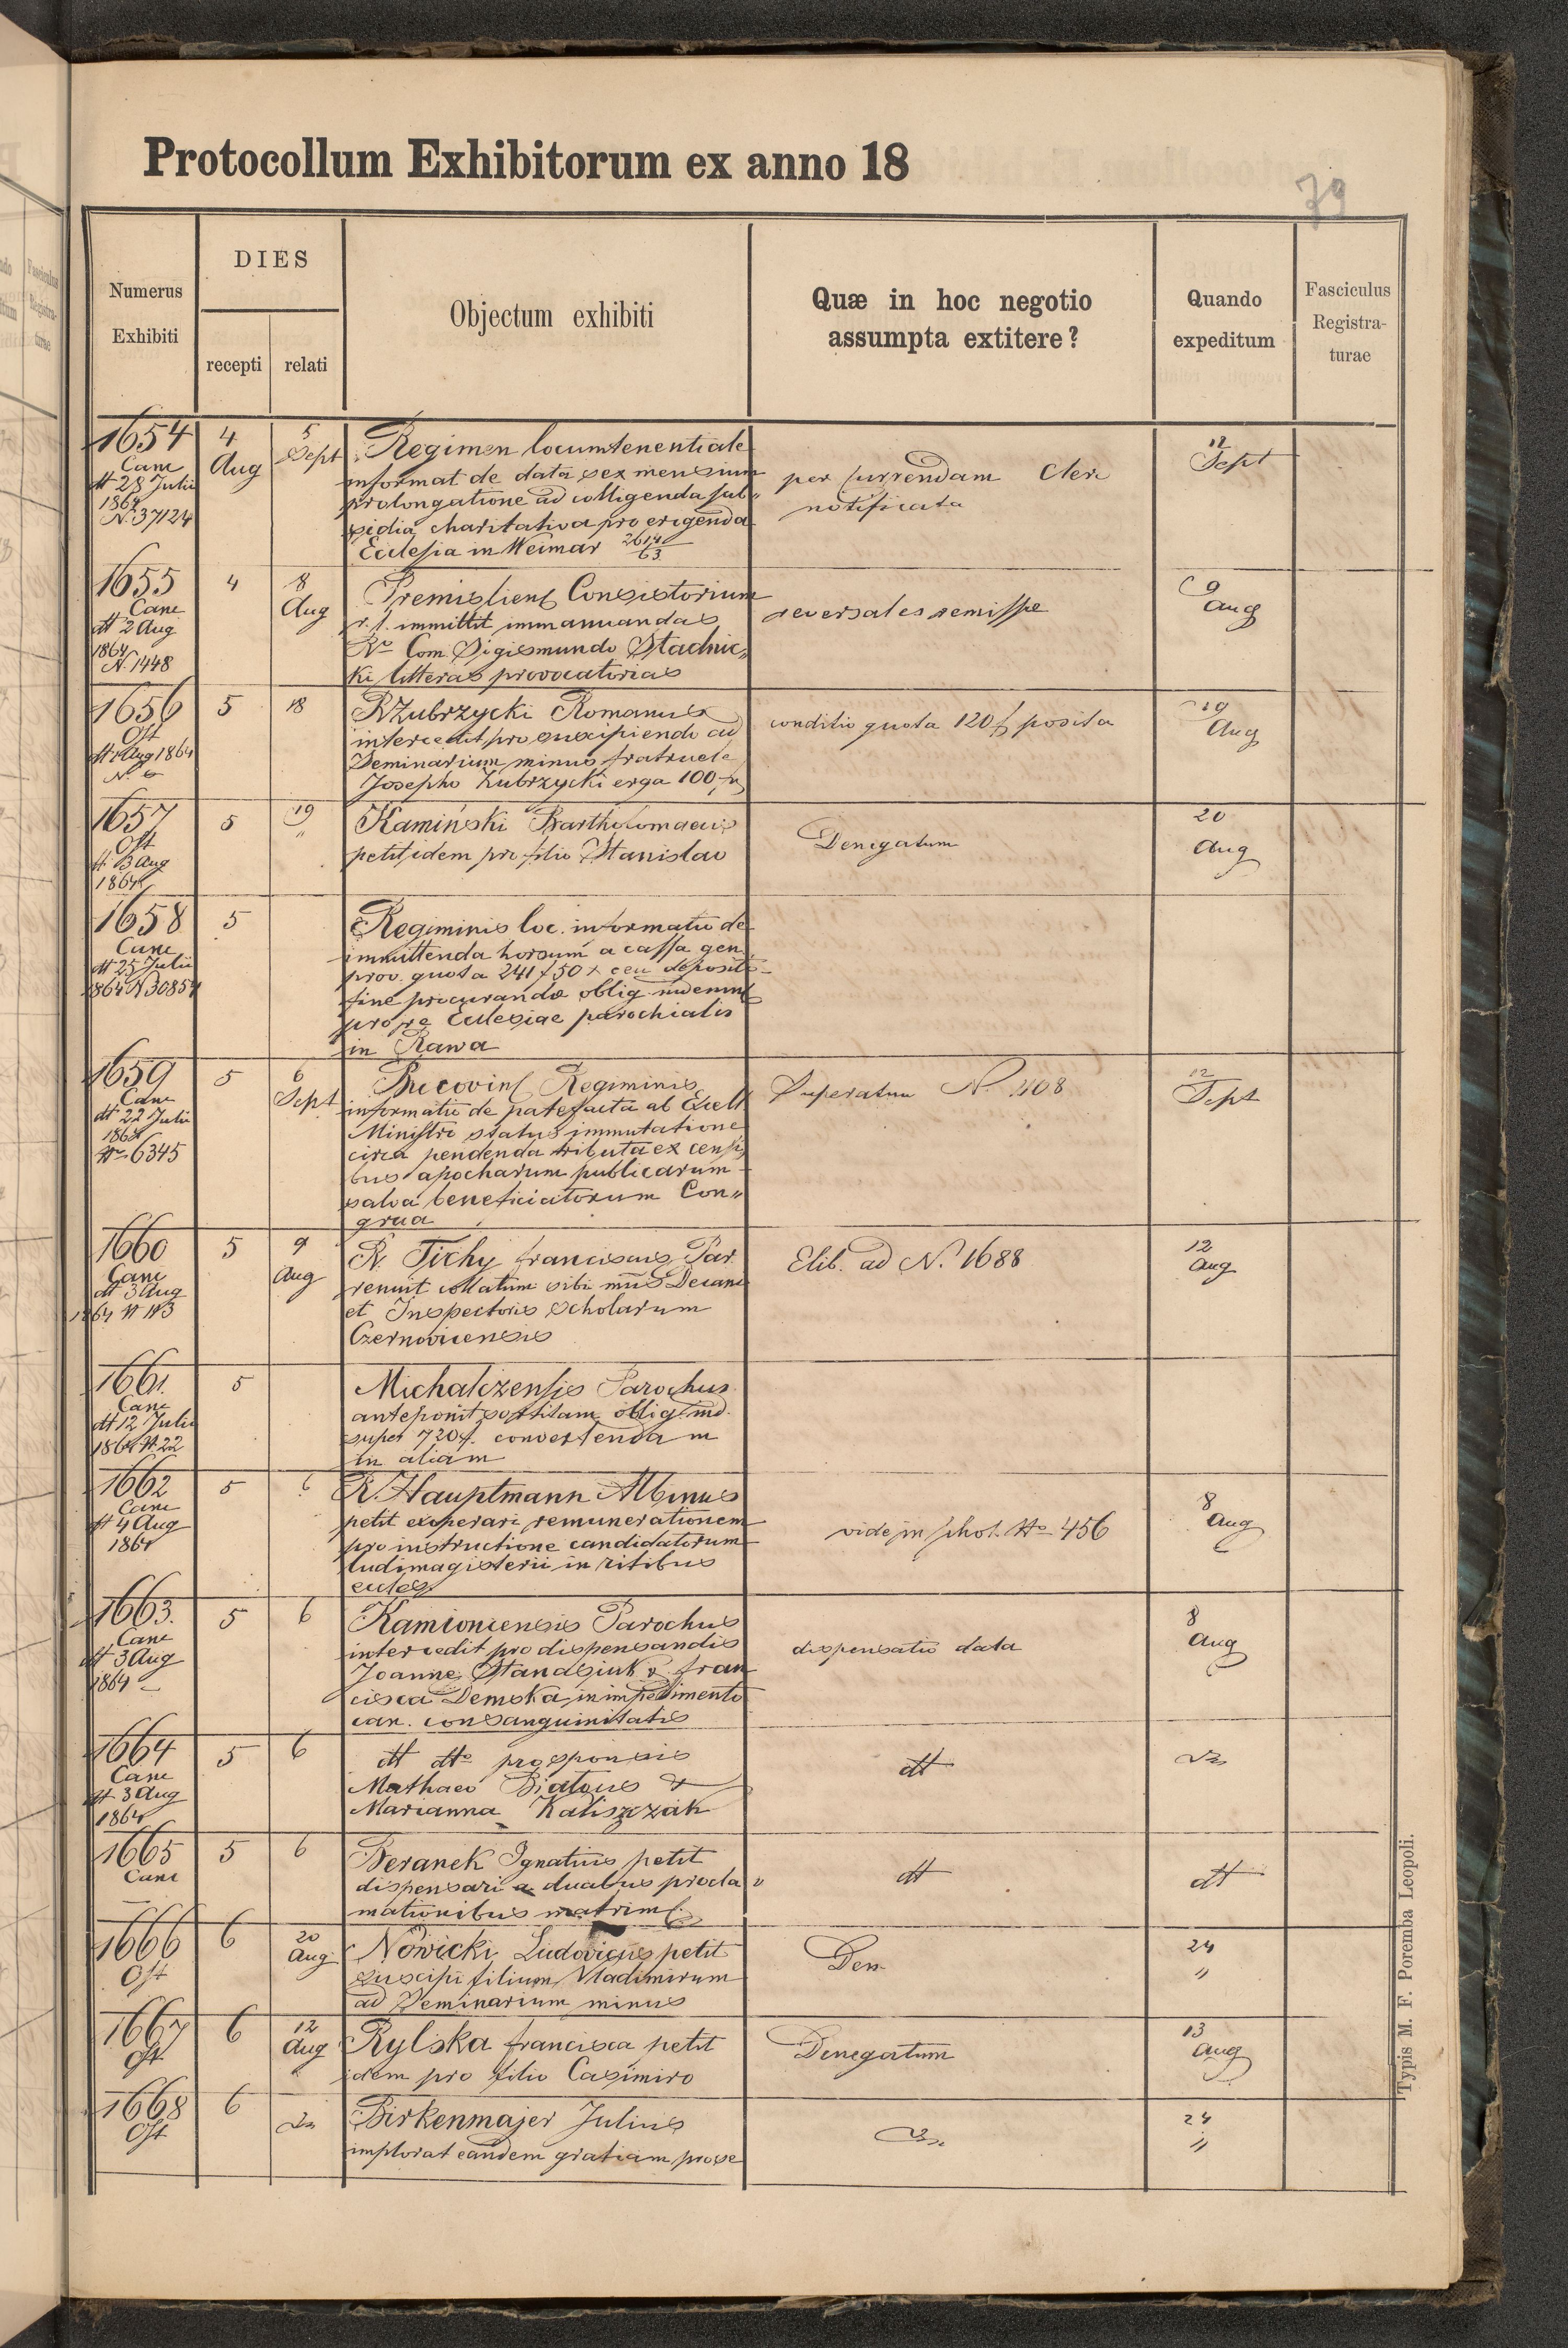 Protocollum Exhibitorum ex anno 18
79
Numerus Exhibiti
DIES
recepti
relati
Objectum exhibiti
Quæ in hoc negotio assumpta extitere?
Quando expeditum
Fasciculus Registra-turae
1654
Canc
dt 28 Julii
1864
N. 37124
4
Aug
5
Sept
Regimen locumtenentiale
informat de data sex mensium
prolongatione ad colligenda sub„
sidia charitativa pro erigenda
Ecclesia in Weimar 2614/63
per currendam Cleri
notificata
12
Sept
1655
Canc
dt 2 Aug
1864
N. 1448
4
8
Aug
Premisliens Consistorium
r. l. immittit immanuandas
Ro Com Sigismundo Stadnic„
ki litteras provocatorias
reversales remissae
9
Aug
1656
Ost
dt 1 Aug 1864
N. 6
5
18
R Zubrzycki Romanus
intercedit pro suscipiendo ad
Seminarium minus fratruele
Josepho Zubrzycki erga 100 f
conditio quota 120 f posita
19
Aug
1657
Ost
dt 3 Aug
1864
5
19
"
Kamiński Bartholomaeus
petit idem pro filio Stanislao
Denegatum
20
Aug
1658
Canc
dt 25 Julii
1864 N 30854
5
Regiminis loc. informatio de
immittenda horsum a cassa gen
prov. quota 241 f 50 x ceu deposito
fine procurandae oblig indemnis
pro re Ecclesiae parochialis
in Rawa
1659
Canc
dt 22 Julii
1864
No 6345
5
6
Sept
Bucovins Regiminis
informatio de patefacta ab Excell
Ministri status immutatione
circa pendenda tributa ex censi
bus apocharum publicarum
salva beneficiatorum Con„
grua
Superatum N. 408
12
Sept
1660
Canc
dt 3 Aug
1864 N 113
5
9
Aug
R. Tichy franciscus Par.
renuit collatum sibi mus Decani
et Inspectoris scholarum
Czernovicensis
Elib. ad N. 1688
12
Aug
1661.
Canc
dt 12 Julii
1864 N. 22
5
Michalczensis Parochus
anteponit sortitam oblig ind.
super 720 f. convertendam
in aliam
1662
Canc
dt 4 Aug
1864
5
6
R. Hauptmann Albinus
petit exoperari remunerationem
pro instructione candidatorum
ludimagisterii in ritibus
eccles.
vide in schol. No 456
8
Aug
1663.
Canc
dt 3 Aug
1864
5
6
Kamioniensis Parochus
intercedit pro dispensandis
Joanne Stanasiuk & fran
cisca Demska in impedimento
can. consanguinitatis
dispensatio data
8
Aug
1664
Canc
dt 3 Aug
1864
5
6
dt dto pro sponsis
Mathaeo Białous &
Marianna Kaliszczak
dt
1665
Canc
5
6
Beranek Ignatius petit
dispensari a duabus procla„
mationibus matrim
dt
dt
1666
Ost
6
20
Aug
Nowicki Ludovicus petit
suscipi filium Vladimirum
ad Seminarium minus
Den
24
"
1667
Ost
6
12
Aug
Rylska francisca petit
idem pro filio Casimiro
Denegatum
13
Aug
1668
Ost
6
Birkenmajer Julius
implorat eandem gratiam pro se
24
"
Typis M. F. Poremba Leopoli.